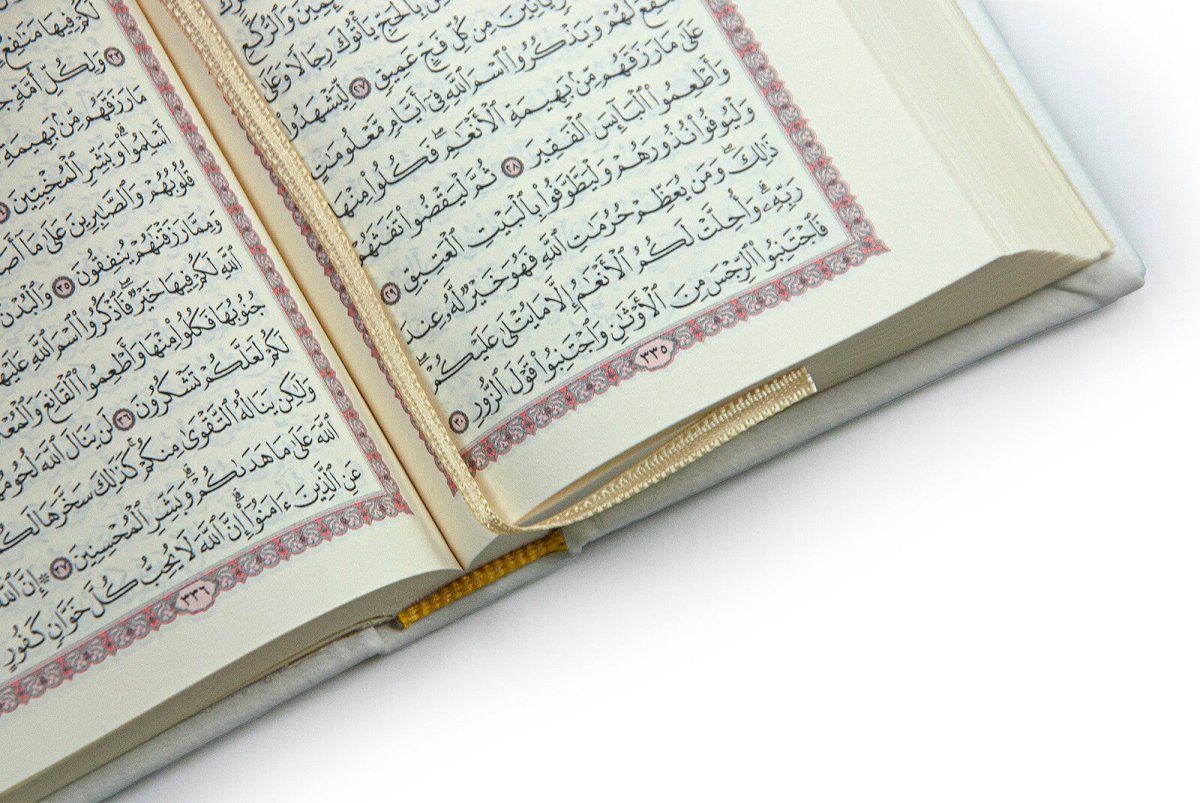 وَٱلرُّكَّعِ
بِٱلْحَجِّ يَأْتُوكَ رِجَالًا وَعَلَىٰ
يَأْتِينَ مِن كُلِّ فَجٍّ عَمِيقٍ ٢٧ لِّيَشْهَدُوا۟
لَهُمْ وَيَذْكُرُوا۟ ٱسْمَ ٱللَّهِ فِىٓ أَيَّامٍ مَّعْلُومَٰتٍ
عَلَىٰ مَا رَزَقَهُم مِّنۢ بَهِيمَةِ ٱلْأَنْعَٰمِ ۖ فَكُلُوا۟ مِنْهَا
وَأَطْعِمُوا۟ ٱلْبَآئِسَ ٱلْفَقِيرَ ٢٨ ثُمَّ لْيَقْضُوا۟ تَفَثَهُمْ
وَلْيُوفُوا۟ نُذُورَهُمْ وَلْيَطَّوَّفُوا۟ بِٱلْبَيْتِ ٱلْعَتِيقِ ٢٩
ذَٰلِكَ ۖ وَمَن يُعَظِّمْ حُرُمَٰتِ ٱللَّهِ فَهُوَ خَيْرٌ لَّهُۥ عِندَ
رَبِّهِۦ ۗ وَأُحِلَّتْ لَكُمُ ٱلْأَنْعَٰمُ إِلَّا مَا يُتْلَىٰ عَلَيْكُمْ ۖ
فَٱجْتَنِبُوا۟ ٱلرِّجْسَ مِنَ ٱلْأَوْثَٰنِ وَٱجْتَنِبُوا۟ قَوْلَ ٱلزُّورِ ٣٠
٣٣٥
لَكُمْ فِيهَا مَنَٰفِعُ
٣٣ وَلِكُلِّ أُمَّةٍ
مَا رَزَقَهُم مِّنۢ بَهِيمَةِ
أَسْلِمُوا۟ ۗ وَبَشِّرِ ٱلْمُخْبِتِينَ
قُلُوبُهُمْ وَٱلصَّٰبِرِينَ عَلَىٰ مَآ
وَمِمَّا رَزَقْنَٰهُمْ يُنفِقُونَ ٣٥ وَٱلْبُدْنَ
ٱللَّهِ لَكُمْ فِيهَا خَيْرٌ ۖ فَٱذْكُرُوا۟ ٱسْمَ ٱللَّهِ عَلَيْهَا
جُنُوبُهَا فَكُلُوا۟ مِنْهَا وَأَطْعِمُوا۟ ٱلْقَانِعَ
لَكُمْ لَعَلَّكُمْ تَشْكُرُونَ ٣٦ لَن يَنَالَ ٱللَّهَ لُحُومُهَا
وَلَٰكِن يَنَالُهُ ٱلتَّقْوَىٰ مِنكُمْ ۚ كَذَٰلِكَ سَخَّرَهَا لَكُمْ
ٱللَّهَ عَلَىٰ مَا هَدَىٰكُمْ ۗ وَبَشِّرِ ٱلْمُحْسِنِينَ ٣٧ ۞ إِنَّ ٱللَّهَ
عَنِ ٱلَّذِينَ ءَامَنُوٓا۟ ۗ إِنَّ ٱللَّهَ لَا يُحِبُّ كُلَّ خَوَّانٍ كَفُورٍ
٣٣٦